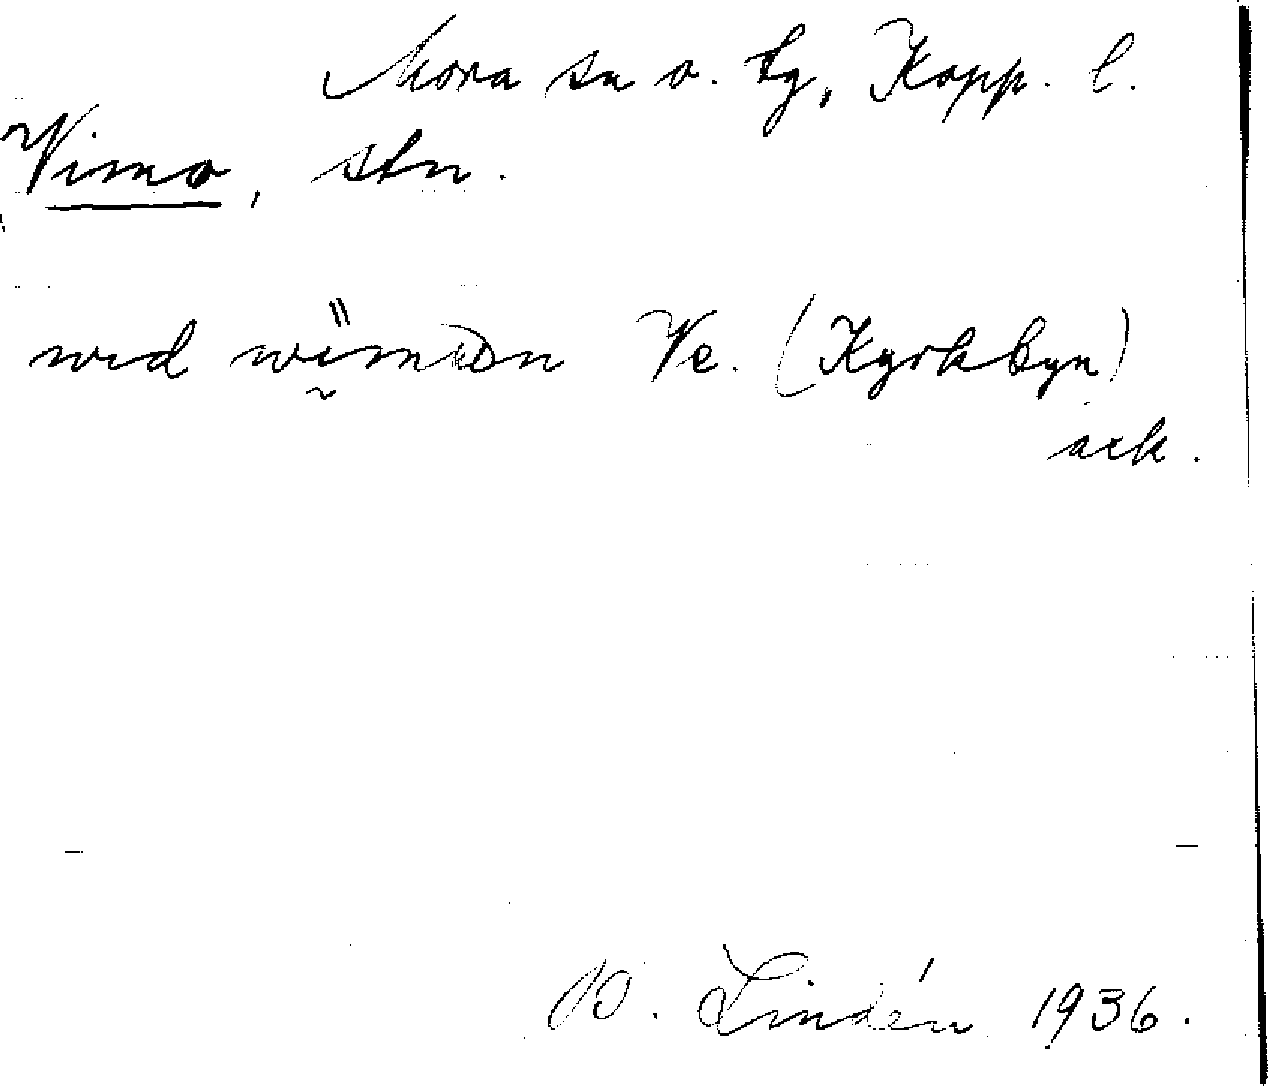 Mora sn o. tg, Kopp. l.
Vimo, stn.
wid Ve. (Kyrkbyn)
ack.
B. Lindén 1936.